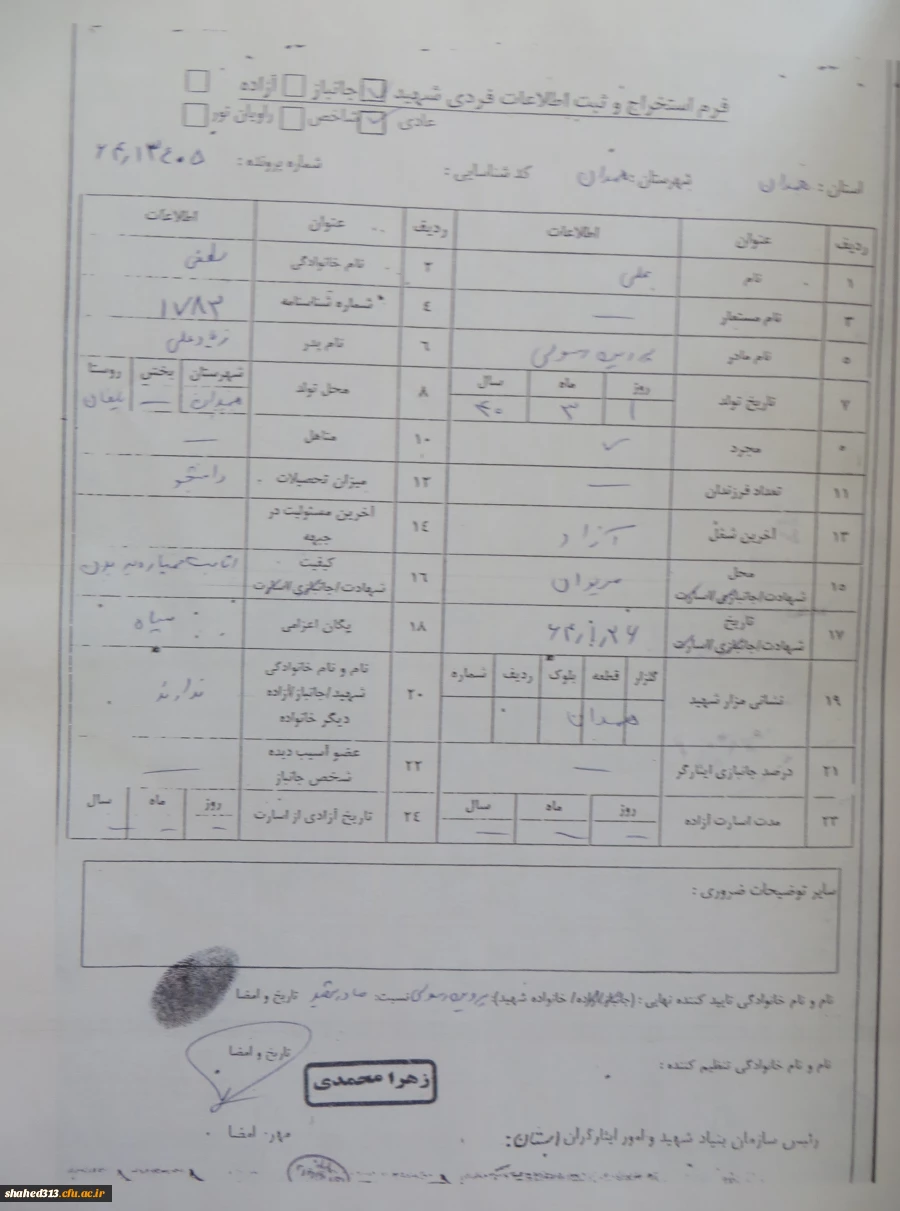 فرم استخراج و ثبت اطلاعات فردی شهید جانباز آزاده
عادی شاخص راویان نور
استان: همدان شهرستان: همدان کد شناسایی: شماره پرونده:
ردیف عنوان اطلاعات ردیف عنوان اطلاعات
۱ نام علی ۲ نام خانوادگی
۳ نام مستعار — ۴ شماره شناسنامه ۱۷۸۳
۵ نام مادر ۶ نام پدر
۷ تاریخ تولد روز ماه سال ۸ محل تولد شهرستان بخش روستا
۱ ۳ ۴۰ همدان —
مجرد ✓ ۱۰ متاهل —
۱۱ تعداد فرزندان — ۱۲ میزان تحصیلات دانشجو
۱۳ آخرین شغل آزاد ۱۴ آخرین مسئولیت در
جبهه
۱۵ محل
شهادت/جانبازی/اسارت مریوان ۱۶ کیفیت
شهادت/جانبازی/اسارت
۱۷ تاریخ
شهادت/جانبازی/اسارت ۱۸ یگان اعزامی سپاه
۱۹ نشانی مزار شهید گلزار قطعه بلوک ردیف شماره
همدان
۲۰ نام و نام خانوادگی
شهید/جانباز/آزاده
دیگر خانواده ندارند
۲۱ درصد جانبازی ایثارگر — ۲۲ عضو آسیب دیده
شخص جانباز —
۲۳ مدت اسارت آزاده روز ماه سال ۲۴ تاریخ آزادی از اسارت روز ماه سال
— — — — — —
سایر توضیحات ضروری:
نام و نام خانوادگی تایید کننده نهایی: (جانباز/آزاده/خانواده شهید): نسبت: تاریخ و امضا
نام و نام خانوادگی تنظیم کننده: تاریخ و امضا
زهرا محمدی
رئیس سازمان بنیاد شهید و امور ایثارگران استان: مهر. امضا
shahed313.cfu.ac.ir